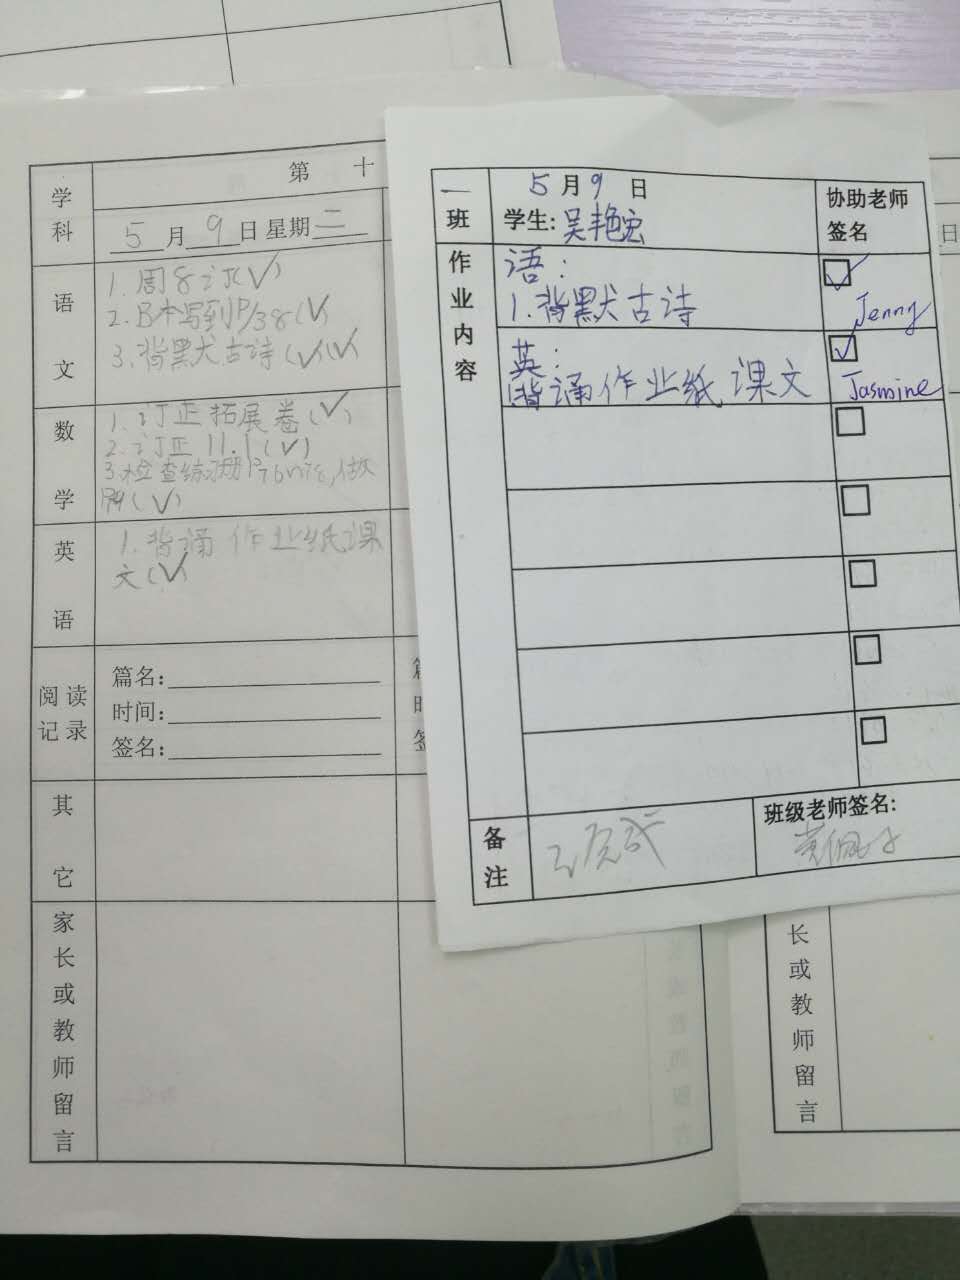 学科
第 十
5月9日 星期二
语文
1. 周8订(√)
2. B本写到P138(√)
3. 背默古诗(√)(√)
数学
1. 订正拓展卷(√)
2. 订正11.1(√)
3. 检查练习册P76
(√)
英语
1. 背诵作业纸课
文(√)
阅读记录
篇名:
时间:
签名:
其它
家长或教师留言
一班
5月9日
学生: 吴艳宏
协助老师
签名
作业内容
语:
1. 背默古诗
Jenny
英:
背诵作业纸课文
Jasmine
备注
已完成
班级老师签名:
日
长或教师留言